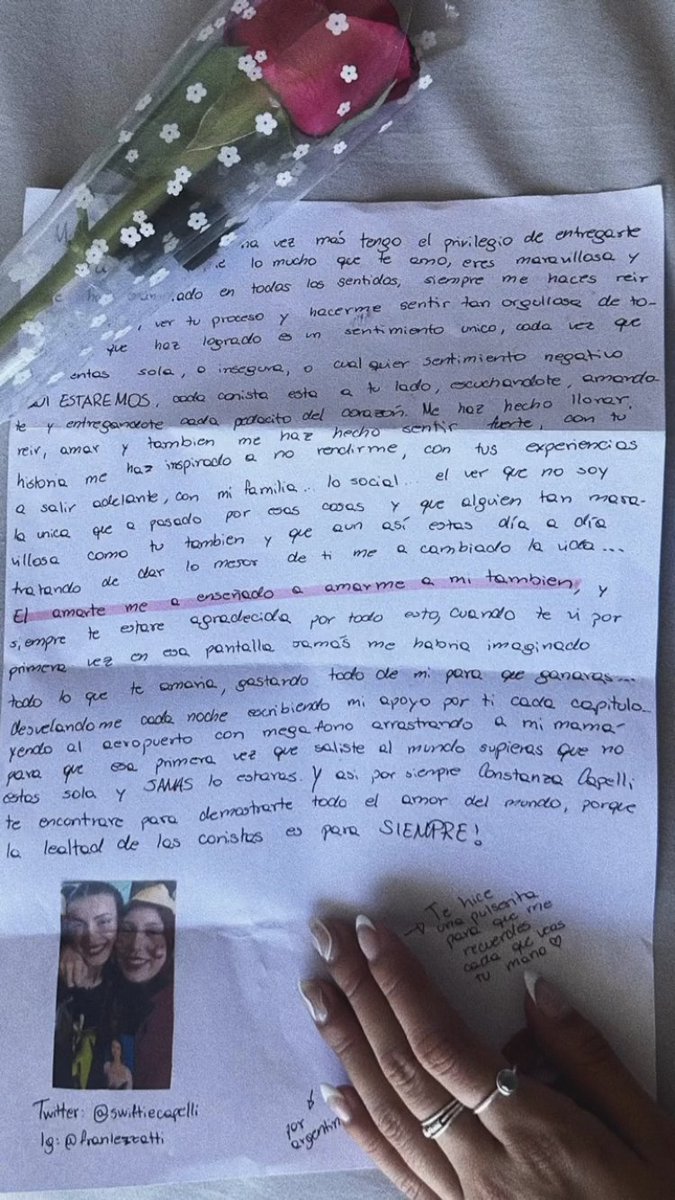 vez más tengo el privilegio de entregarte
lo mucho que te amo, eres maravillosa y
en todos los sentidos, siempre me haces reir
, ver tu proceso y hacerme sentir tan orgullosa de to-
que haz logrado es un sentimiento unico, cada vez que
sola, o insegura, o cualquier sentimiento negativo
ESTAREMOS, cada conista esta a tu lado, escuchandote, amando-
te y entregandote cada pedacito del corazón. Me haz hecho llorar,
reir, amar y tambien me haz hecho sentir fuerte, con tu
historia me haz inspirado a no rendirme, con tus experiencias
a salir adelante, con mi familia... lo social... el ver que no soy
la unica que a pasado por esas cosas y que alguien tan mara-
villosa como tu tambien y que aun así estas día a día
tratando de dar lo mejor de ti me a cambiado la vida...
El amarte me a enseñado a amarme a mi tambien, y
siempre te estare agradecida por todo esto, cuando te vi por
primera vez en esa pantalla jamás me habria imaginado
todo lo que te amaria, gastando todo de mi para que ganaras...
desvelandome cada noche escribiendo mi apoyo por ti cada capitulo
yendo al aeropuerto con megafono arrastrando a mi mama
para que esa primera vez que saliste al mundo supieras que no
estas sola y JAMAS lo estaras. Y asi por siempre Constanza Capelli
te encontrare para demostrarte todo el amor del mundo, porque
la lealtad de las conistas es para SIEMPRE!
Te hice
una pulserita
para que me
recuerdes
cada que veas
tu mano ♡
Twitter: @swiftiecapelli
Ig: @franlezcatti
por
argentin